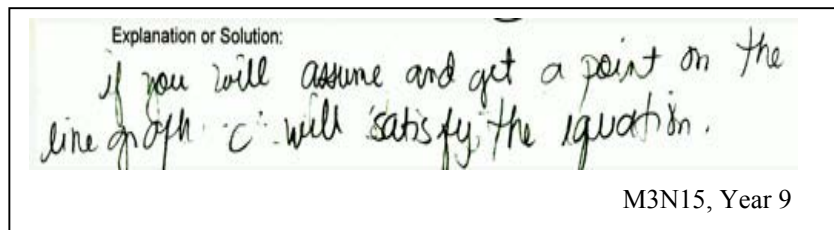 Explanation or Solution:
if you will assume and get a point on the
line graph "C" will satisfy the equation.
M3N15, Year 9